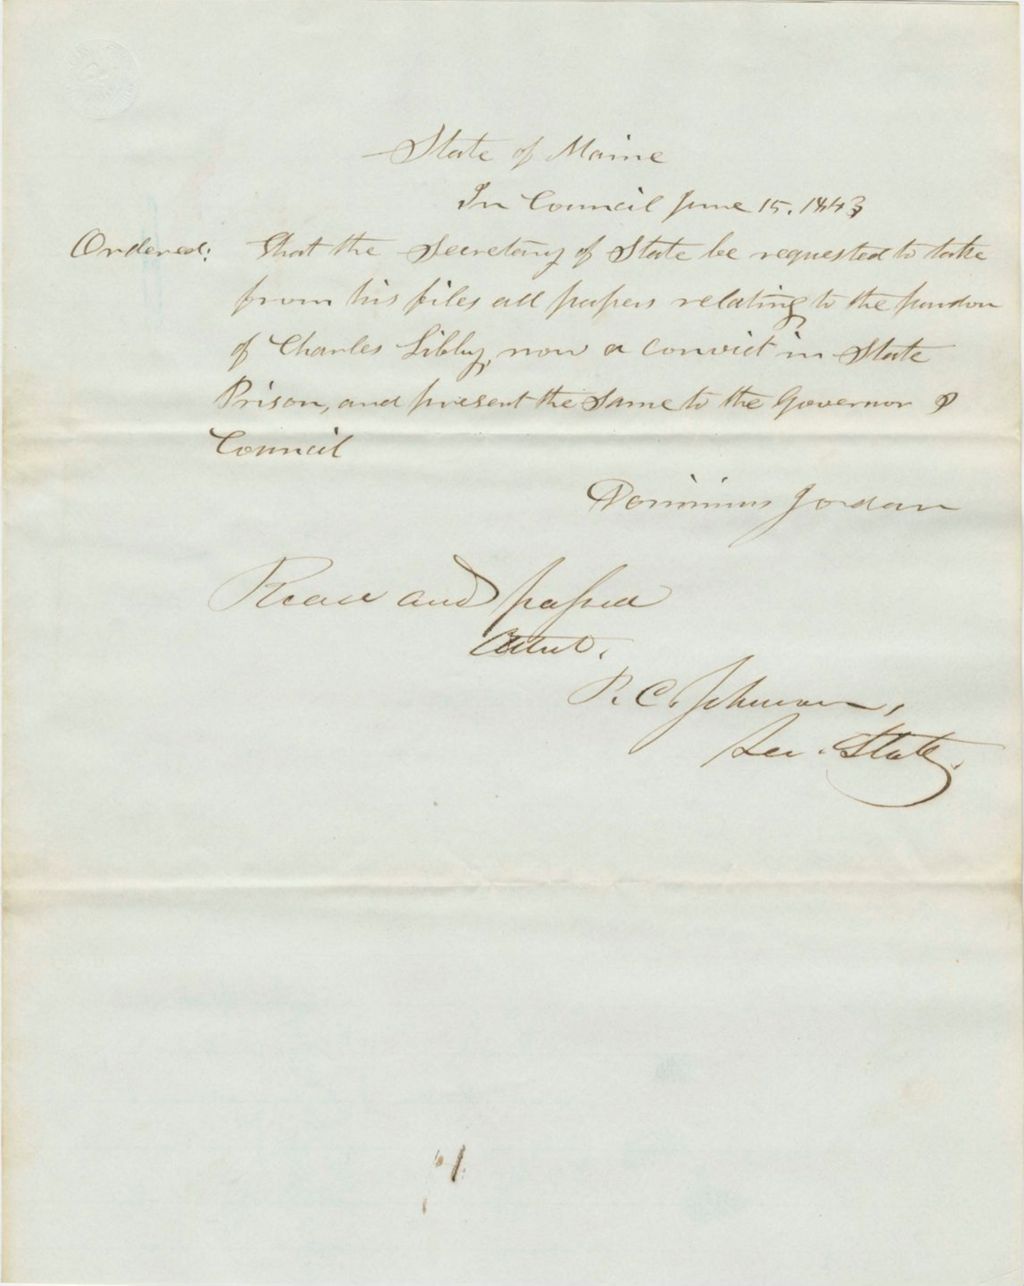 State of Maine
In Council June 15. 1843
Ordered: That the Secretary of State be requested to take
from his files all papers relating to the pardon
of Charles Libby, now a convict in State
Prison, and present the same to the Governor &
Council
Dominicus Jordan
Read and passed
Attest.
P. C. Johnson,
Sec. State.